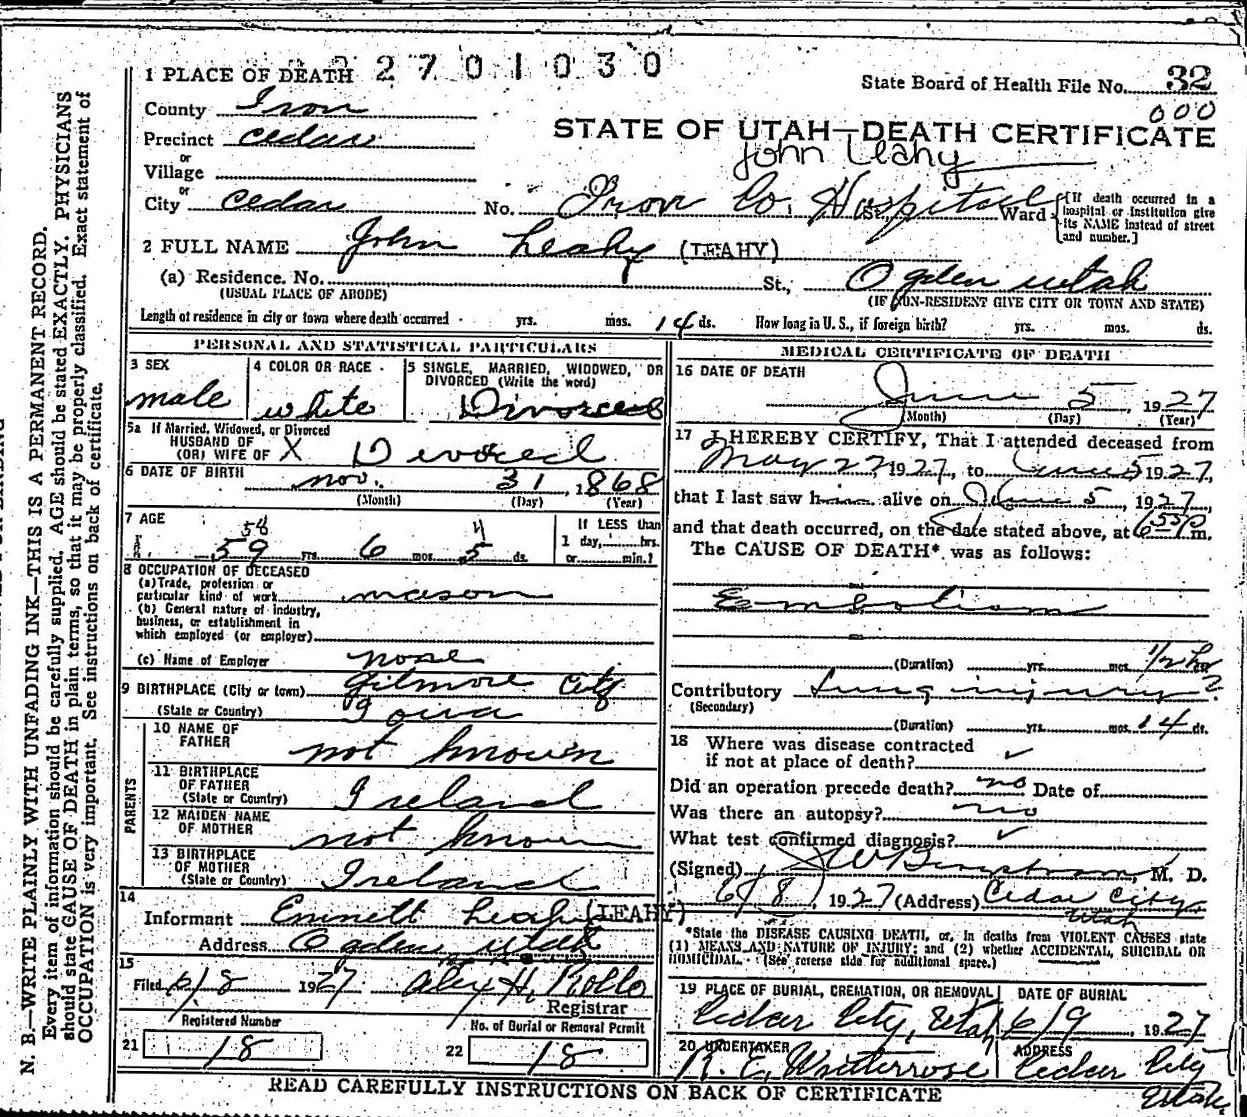 2701030
1 PLACE OF DEATH
State Board of Health File No. 32
000
County Iron
STATE OF UTAH—DEATH CERTIFICATE
Precinct Cedar
John Leahy
or
Village
or
City Cedar No. Iron Co. Hospital St., Ward [If death occurred in a hospital or institution give its NAME instead of street and number.]
2 FULL NAME John Leahy (LEAHY)
(a) Residence. No. St., Ogden Utah
(USUAL PLACE OF ABODE) (IF NON-RESIDENT GIVE CITY OR TOWN AND STATE)
Length of residence in city or town where death occurred yrs. mos. 14 ds. How long in U. S., if foreign birth? yrs. mos. ds.
PERSONAL AND STATISTICAL PARTICULARS
3 SEX
male
4 COLOR OR RACE
white
5 SINGLE, MARRIED, WIDOWED, OR
DIVORCED (Write the word)
Divorced
5a If Married, Widowed, or Divorced
HUSBAND OF
(OR) WIFE OF X Divorced
6 DATE OF BIRTH nov. 31, 1868
(Month) (Day) (Year)
7 AGE
58 4
59 yrs. 6 mos. 5 ds.
If LESS than
1 day, hrs.
or min.?
8 OCCUPATION OF DECEASED
(a) Trade, profession or
particular kind of work mason
(b) General nature of industry,
business, or establishment in
which employed (or employer)
(c) Name of Employer none
9 BIRTHPLACE (City or town) Gilmore City
(State or Country) Iowa
PARENTS
10 NAME OF
FATHER not known
11 BIRTHPLACE
OF FATHER
(State or Country) Ireland
12 MAIDEN NAME
OF MOTHER not known
13 BIRTHPLACE
OF MOTHER
(State or Country) Ireland
14
Informant Emmett Leahy (LEAHY)
Address Ogden Utah
15
Filed 6/8 1927
Registrar
Registered Number
21 18
No. of Burial or Removal Permit
22 18
MEDICAL CERTIFICATE OF DEATH
16 DATE OF DEATH
June 5, 1927
(Month) (Day) (Year)
17 I HEREBY CERTIFY, That I attended deceased from
May 27, 1927, to June 5 1927,
that I last saw him alive on June 5, 1927,
and that death occurred, on the date stated above, at 6 55 P. m.
The CAUSE OF DEATH* was as follows:
Embolism
(Duration) yrs. mos. 1/2 hr
Contributory Lung injury ?
(Secondary)
(Duration) yrs. mos. 14 ds.
18 Where was disease contracted
if not at place of death? ✓
Did an operation precede death? no Date of
Was there an autopsy? no
What test confirmed diagnosis? ✓
(Signed) M. D.
6/8, 1927 (Address) Cedar City
Utah
*State the DISEASE CAUSING DEATH, or, in deaths from VIOLENT CAUSES state
(1) MEANS AND NATURE OF INJURY; and (2) whether ACCIDENTAL, SUICIDAL OR
HOMICIDAL. (See reverse side for additional space.)
19 PLACE OF BURIAL, CREMATION, OR REMOVAL
Cedar City, Utah
DATE OF BURIAL
6/9, 1927
20 UNDERTAKER
ADDRESS
Cedar City
Utah
READ CAREFULLY INSTRUCTIONS ON BACK OF CERTIFICATE
N. B.—WRITE PLAINLY WITH UNFADING INK—THIS IS A PERMANENT RECORD.
Every item of information should be carefully supplied. AGE should be stated EXACTLY. PHYSICIANS
should state CAUSE OF DEATH in plain terms, so that it may be properly classified. Exact statement of
OCCUPATION is very important. See instructions on back of certificate.